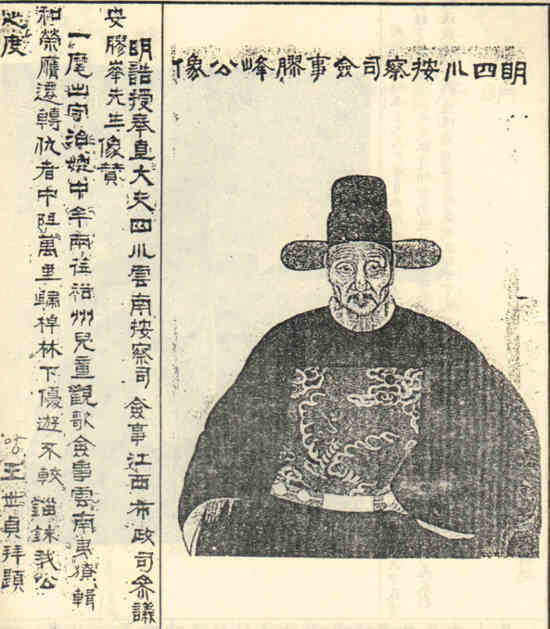 明四川按察司僉事膠峰公像
明誥授奉直大夫四川雲南按察司僉事江西布政司叅議
安膠峯先生像贊
一麾出守治中年兩往裕州兒童觀歌僉事雲南夷獠輯
和榮膺遷轉仇者中阻萬里歸棹林下優遊不較錙銖我公
之度
王世貞拜題